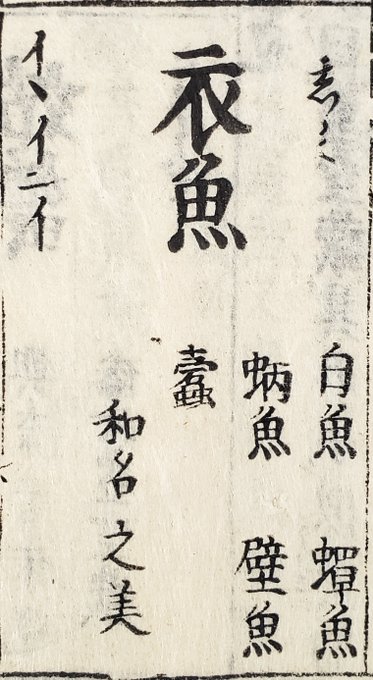 しミ
衣魚
イヽイニイ
白魚 蟫魚
蛃魚 壁魚
蠹
和名之美